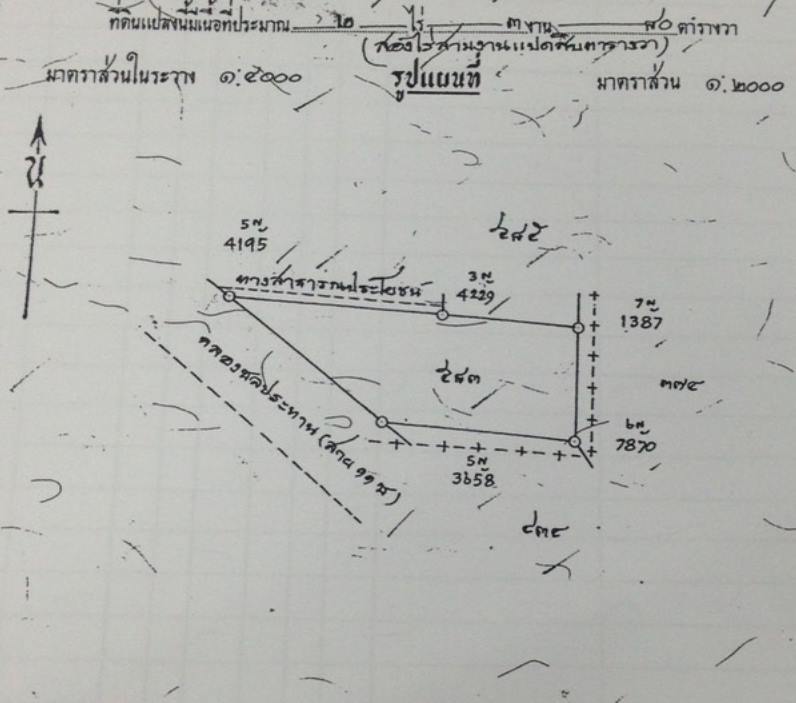 ที่ดินแปลงนี้มีเนื้อที่ประมาณ ๒ ไร่ ๓ งาน ๘๐ ตารางวา
(สองไร่สามงานแปดสิบตารางวา)
มาตราส่วนในระวาง ๑:๔๐๐๐ รูปแผนที่ มาตราส่วน ๑:๒๐๐๐
น
5น
4195
ทางสาธารณประโยชน์
3น
4229
7น
1387
๓๗๔
คลองชลประทาน (สาย ๑๑ ซ)
6น
7870
5น
3658